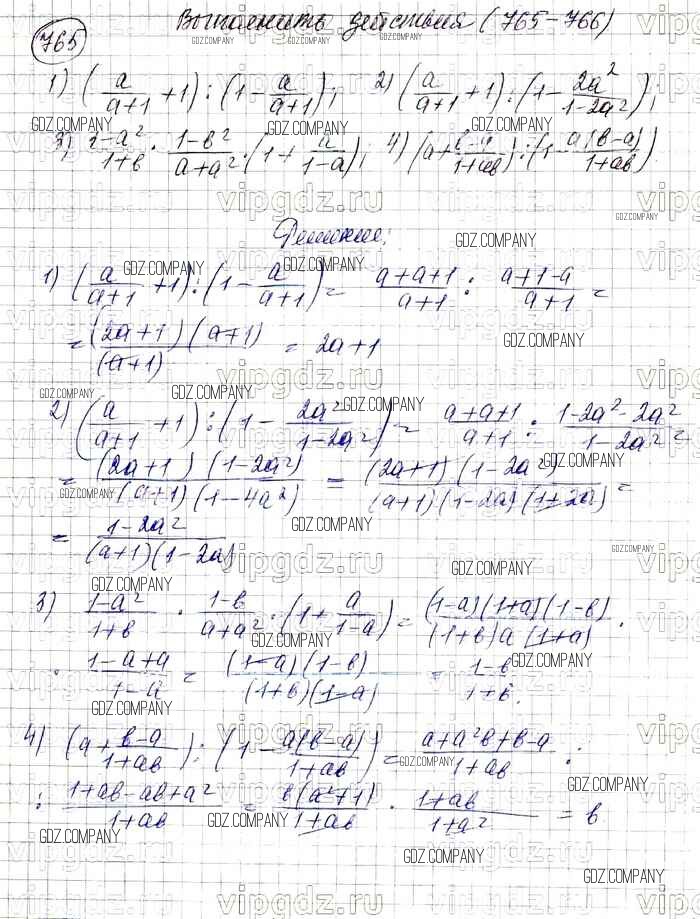 Выполнить действия (765-766)
765
1) (a/(a+1) + 1) : (1 - a/(a+1)); 2) (a/(a+1) + 1) : (1 - 2a²/(1-2a²));
3) (1-a²)/(1+b) · (1-b²)/(a+a²) · (1 + a/(1-a)); 4) (a + (b-a)/(1+ab)) : (1 - a(b-a)/(1+ab))
Решение:
1) (a/(a+1) + 1) : (1 - a/(a+1)) = (a+a+1)/(a+1) : (a+1-a)/(a+1) =
= (2a+1)(a+1)/(a+1) = 2a+1
2) (a/(a+1) + 1) : (1 - 2a²/(1-2a²)) = (a+a+1)/(a+1) : (1-2a²-2a²)/(1-2a²) =
= (2a+1)(1-2a²)/((a+1)(1-4a²)) = (2a+1)(1-2a²)/((a+1)(1-2a)(1+2a)) =
= (1-2a²)/((a+1)(1-2a))
3) (1-a²)/(1+b) · (1-b)/(a+a²) · (1 + a/(1-a)) = (1-a)(1+a)(1-b)/((1+b)a(1+a)) ·
· (1-a+a)/(1-a) = (1-a)(1-b)/((1+b)(1-a)) = (1-b)/(1+b).
4) (a + (b-a)/(1+ab)) : (1 - a(b-a)/(1+ab)) = (a+a²b+b-a)/(1+ab) :
: (1+ab-ab+a²)/(1+ab) = b(a²+1)/(1+ab) · (1+ab)/(1+a²) = b
GDZ.COMPANY
vipgdz.ru